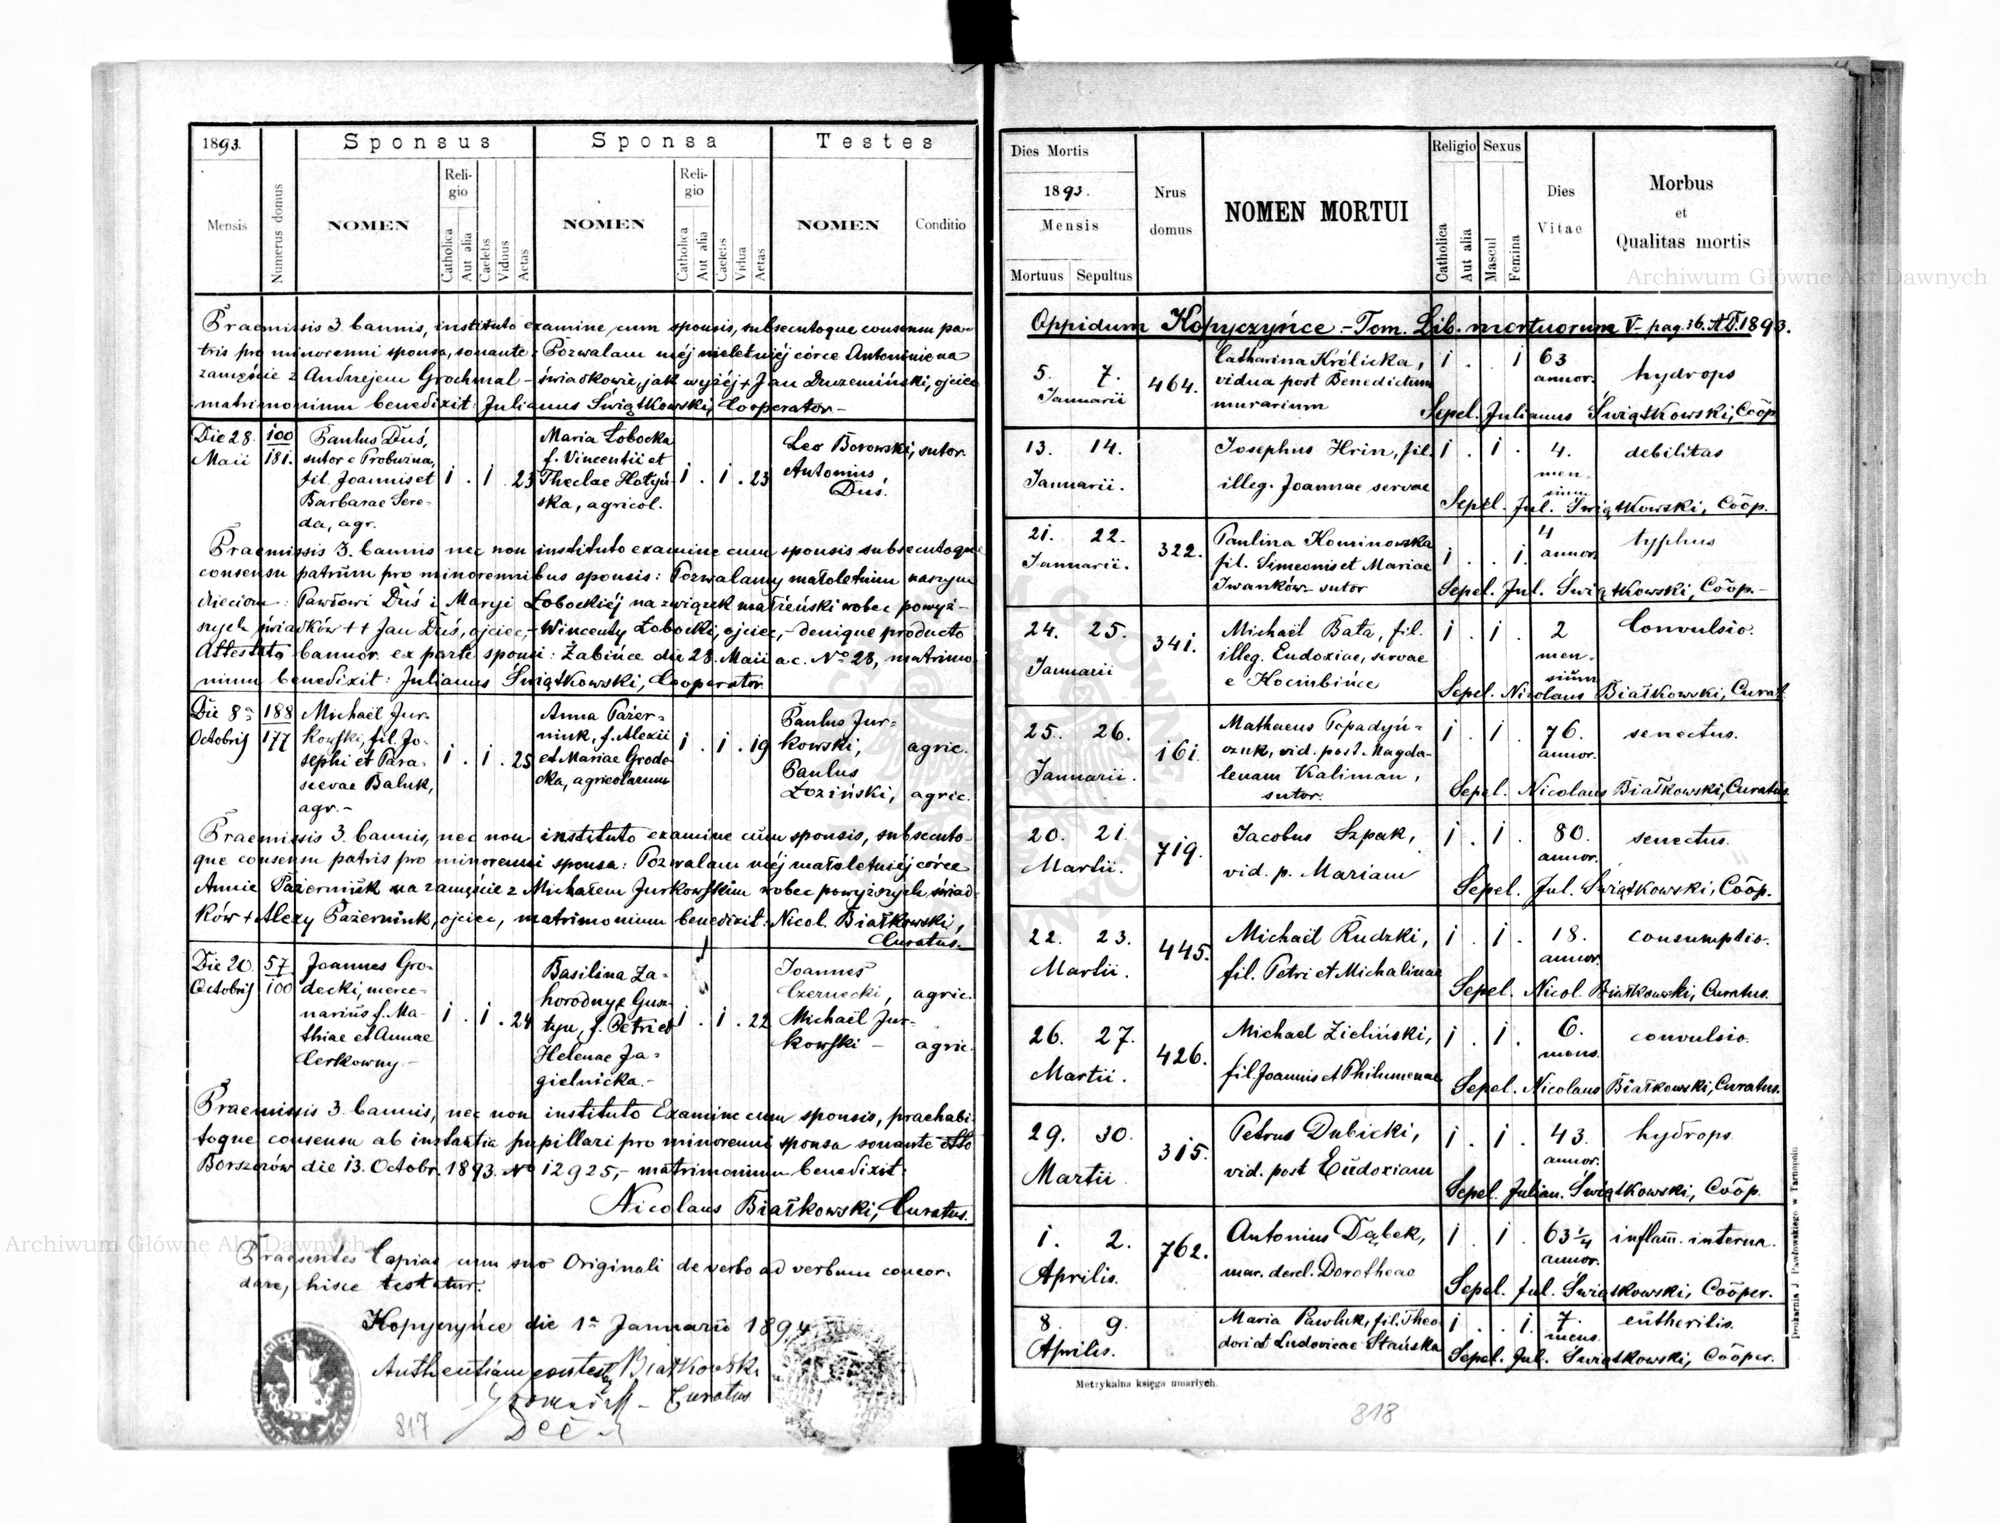 1893.
Sponsus
Sponsa
Testes
Mensis
Numerus domus
NOMEN
Religio
Catholica
Aut alia
Caelebs
Viduus
Aetas
NOMEN
Religio
Catholica
Aut alia
Caelebs
Vidua
Aetas
NOMEN
Conditio
Praemissis 3. bannis, instituto examine cum sponsis, subsecutoque consensu pa-
tris pro minorenni sponsa, sonante: Pozwalam méj nieletniéj córce Antoninie na
zamęście z Andrzejem Grochmal – świadkowie, jak wyżéj + Jan Duszemiński, ojciec
matrimonium benedixit: Julianus Świątkowski, Cooperator –
Die 28.
Maii
100
181.
Paulus Duś,
sutor e Probużna,
fil. Joannis et
Barbarae Sere-
da, agr.
1 . 1 . 23
Maria Łobocka
f. Vincentii et
Theclae Hotyń-
ska, agricol.
1 . 1 . 23
Leo Borowski, sutor.
Antonius
Duś.
Praemissis 3. bannis nec non instituto examine cum sponsis subsecutoque
consensu patrum pro minorennibus sponsis: Pozwalamy małoletnim naszym
dzieciom: Pawłowi Duś i Maryi Łobockiéj na związek małżeński wobec powyż-
szych świadków ++ Jan Duś, ojciec, – Wincenty Łobocki, ojciec, – denique producto
Attestato bannor. ex parte sponsi: Żabińce die 28. Maii a.c. No 28, matrimo-
nium benedixit: Julianus Świątkowski, Cooperator.
Die 8a
Octobris
188
177
Michaël Jur-
kowski, fil. Jo-
sephi et Para-
scevae Baluk,
agr. –
1 . 1 . 25
Anna Pazer-
niuk, f. Alexii
et Mariae Grode-
cka, agricolarum
1 . 1 . 19
Paulus Jur-
kowski, agric.
Paulus
Łoziński, agric.
Praemissis 3. bannis, nec non instituto examine cum sponsis, subsecuto-
que consensu patris pro minorenni sponsa: Pozwalam méj małoletniéj córce
Annie Pazerniuk na zamęście z Michałem Jurkowskim wobec powyższych świad-
ków + Alexy Pazerniuk, ojciec, matrimonium benedixit: Nicol. Białkowski,
Curatus. –
Die 20.
Octobris
57
100
Joannes Gro-
decki, merce-
narius f. Ma-
thiae et Annae
Cerkowny –
1 . 1 . 24
Basilina Za-
horodny
f. Petri et
Helenae Ja-
gielnicka. –
1 . 1 . 22
Joannes
Czernecki, agric.
Michaël Jur-
kowski – agric.
Praemissis 3. bannis, nec non instituto Examine cum sponsis, praehabi-
toque consensu ab instantia pupillari pro minorenni sponsa sonante
Borszczów die 13. Octobr. 1893. No 12925, – matrimonium benedixit:
Nicolaus Białkowski, Curatus.
Praesentes Copias cum suo Originali de verbo ad verbum concor-
dare, hisce testatur.
Kopyczyńce die 1a Januarii 1894
Białkowski
Curatus
817
Dies Mortis
1893.
Mensis
Mortuus
Sepultus
Nrus
domus
NOMEN MORTUI
Religio
Catholica
Aut alia
Sexus
Mascul
Femina
Dies
Vitae
Morbus
et
Qualitas mortis
Oppidum Kopyczyńce. – Tom. Lib. mortuorum V. pag. 36. AD. 1893.
5. 7.
Januarii
464.
Catharina Królicka,
vidua post Benedictum
murarium
1 . . 1
63
annor.
hydrops
Sepel. Julianus Świątkowski, Coop.
13. 14.
Januarii.
Josephus Hrin, fil.
illeg. Joannae servae
1 . 1 .
4.
men-
sium
debilitas
Sepel. Jul. Świątkowski, Coop.
21. 22.
Januarii.
322.
Paulina Kominowska
fil. Simeonis et Mariae
Iwanków – sutor
1 . . 1.
4
annor.
typhus
Sepel. Jul. Świątkowski, Coop. –
24. 25.
Januarii
341.
Michaël Bata, fil.
illeg. Eudoxiae, servae
e Hocimbińce
1 . 1 .
2
men-
sium
Convulsio.
Sepel. Nicolaus Białkowski, Curat.
25. 26.
Januarii.
161.
Mathaeus Popadyń-
czuk, vid. post Magda-
lenam Kaliman,
sutor.
1 . 1 .
76.
annor.
senectus.
Sepel. Nicolaus Białkowski, Curatus.
20. 21.
Martii.
719.
Jacobus Szpak,
vid. p. Mariam
1 . 1 .
80.
annor.
senectus.
Sepel. Jul. Świątkowski, Coop.
22. 23.
Martii.
445.
Michaël Rudzki,
fil. Petri et Michalinae
1 . 1 .
18.
annor.
consumptio.
Sepel. Nicol. Białkowski, Curatus.
26. 27.
Martii.
426.
Michael Zieliński,
fil Joannis et Philumenae
1 . 1 .
6.
mens.
convulsio.
Sepel. Nicolaus Białkowski, Curatus.
29. 30.
Martii
315.
Petrus Dubicki,
vid. post Eudoxiam
1 . 1 .
43.
annor.
hydrops.
Sepel. Julian. Świątkowski, Coop.
1. 2.
Aprilis.
762.
Antonius Dąbek,
mar. derel. Dorotheae
1 . 1 .
63 1/4
annor.
inflam. interna.
Sepel. Jul. Świątkowski, Cooper.
8. 9.
Aprilis.
Maria Pawluk, fil. Theo-
dori et Ludovicae Stańska
1 . . 1.
7.
mens.
Sepel. Jul. Świątkowski, Cooper.
Metrykalna księga umarłych.
Drukarnia J. Pawłowskiego w Tarnopolu
818
Archiwum Główne Akt Dawnych
Archiwum Główne Akt Dawnych